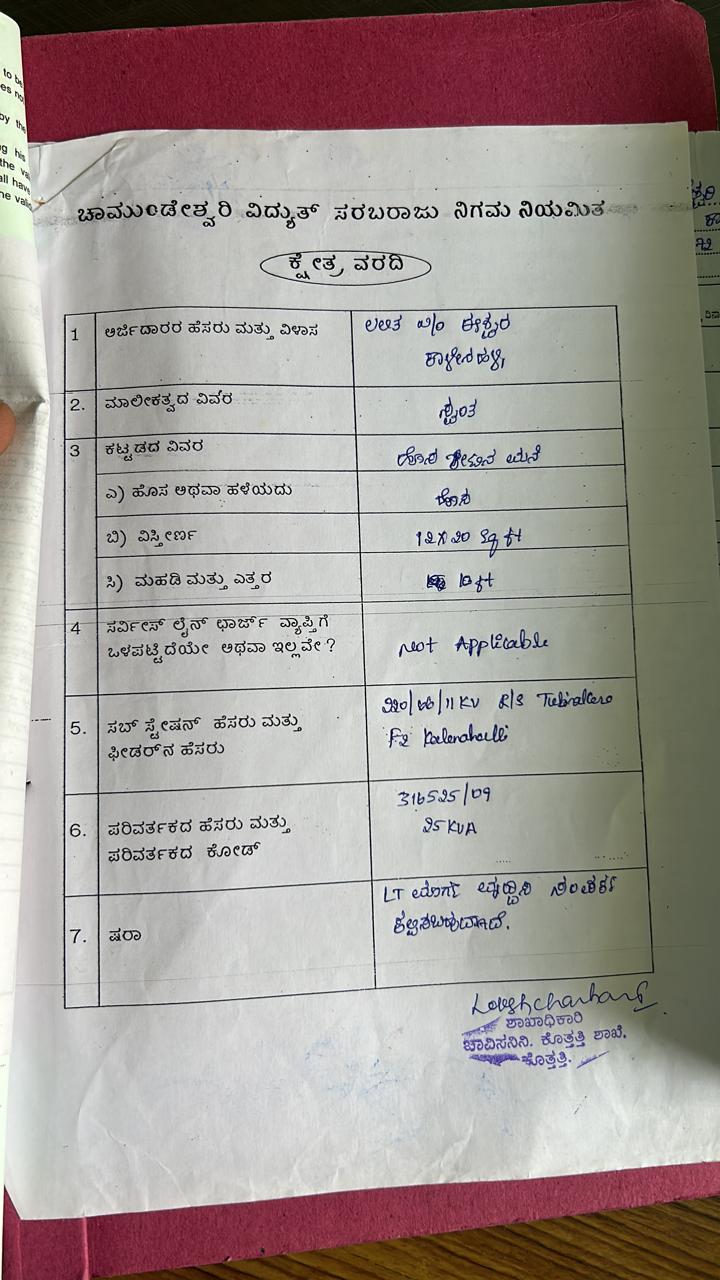 to be
by the
ಚಾಮುಂಡೇಶ್ವರಿ ವಿದ್ಯುತ್ ಸರಬರಾಜು ನಿಗಮ ನಿಯಮಿತ
ಕ್ಷೇತ್ರ ವರದಿ
1 ಅರ್ಜಿದಾರರ ಹೆಸರು ಮತ್ತು ವಿಳಾಸ ಲಲಿತ w/o ಈಶ್ವರ
ಕಾಳೇನಹಳ್ಳಿ
2. ಮಾಲೀಕತ್ವದ ವಿವರ ಸ್ವಂತ
3 ಕಟ್ಟಡದ ವಿವರ ಹೊಸ ಮನೆ
ಎ) ಹೊಸ ಅಥವಾ ಹಳೆಯದು ಹೊಸ
ಬಿ) ವಿಸ್ತೀರ್ಣ 12x20 Sq ft
ಸಿ) ಮಹಡಿ ಮತ್ತು ಎತ್ತರ 10 ft
4 ಸರ್ವೀಸ್ ಲೈನ್ ಛಾರ್ಜ್ ವ್ಯಾಪ್ತಿಗೆ
ಒಳಪಟ್ಟಿದೆಯೇ ಅಥವಾ ಇಲ್ಲವೇ? Not Applicable
5. ಸಬ್ ಸ್ಟೇಷನ್ ಹೆಸರು ಮತ್ತು 220/66/11 KV R/S Tubinakere
ಫೀಡರ್‌ನ ಹೆಸರು F2 Kalenahalli
6. ಪರಿವರ್ತಕದ ಹೆಸರು ಮತ್ತು 316525/09
ಪರಿವರ್ತಕದ ಕೋಡ್ 25 KVA
7. ಷರಾ LT ಮಾರ್ಗ ಸಂಪರ್ಕ
ಕಲ್ಪಿಸಬಹುದಾಗಿದೆ.
ಶಾಖಾಧಿಕಾರಿ
ಚಾವಿಸನಿನಿ. ಕೊತ್ತತ್ತಿ ಶಾಖೆ.
ಕೊತ್ತತ್ತಿ.